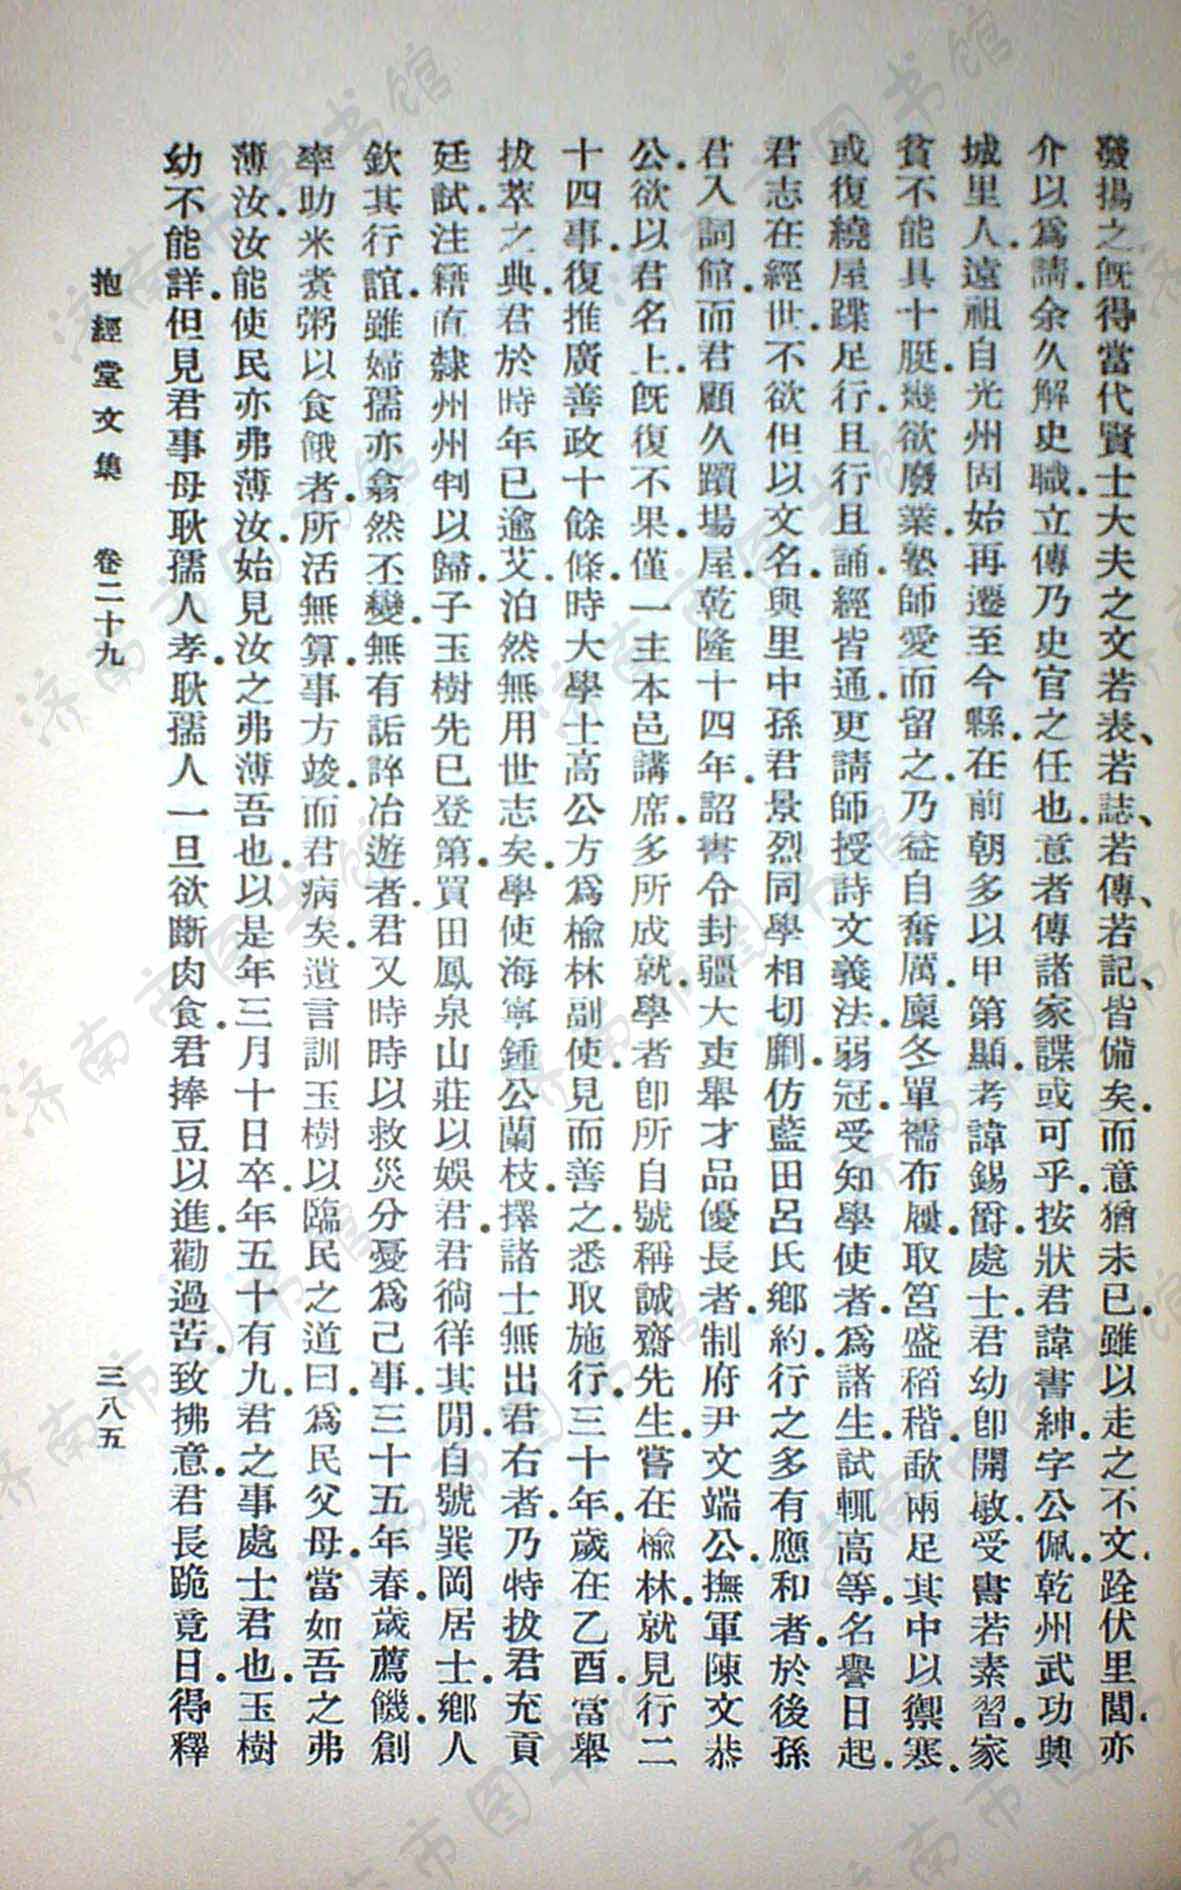 發揚之。旣得當代賢士大夫之文若表、若誌、若傳、若記、皆備矣。而意猶未已。雖以走之不文。跧伏里閭。亦
介以爲請。余久解史職。立傳乃史官之任也。意者傳諸家諜或可乎。按狀君諱書紳。字公佩。乾州武功興
城里人。遠祖自光州固始。再遷至今縣。在前朝多以甲第顯。考諱錫爵。處士。君幼卽開敏。受書若素習。家
貧不能具十脡。幾欲廢業。塾師愛而留之。乃益自奮厲。凜冬單襦布履。取筥盛稻稭。歃兩足其中以禦寒。
或復繞屋蹀足行。且行且誦。經皆通。更請師授詩文義法。弱冠。受知學使者。爲諸生。試輒高等。名譽日起。
君志在經世。不欲但以文名。與里中孫君景烈同學相切劘。仿藍田呂氏鄉約。行之多有應和者。於後孫
君入詞館。而君顧久躓場屋。乾隆十四年。詔書令封疆大吏舉才品優長者。制府尹文端公。撫軍陳文恭
公。欲以君名上。旣復不果。僅一主本邑講席。多所成就。學者卽所自號稱誠齋先生。嘗在榆林。就見行二
十四事。復推廣善政十餘條。時大學士高公方爲榆林副使。見而善之。悉取施行。三十年。歲在乙酉。當舉
拔萃之典。君於時年已逾艾。泊然無用世志矣。學使海寧鍾公蘭枝。擇諸士無出君右者。乃特拔君充貢
廷試。注籍直隸州州判以歸。子玉樹先已登第。買田鳳泉山莊以娛君。君徜徉其閒。自號巽岡居士。鄉人
欽其行誼。雖婦孺亦翕然丕變。無有詬誶冶遊者。君又時時以救災分憂爲己事。三十五年春。歲薦饑。創
率助米煑粥以食餓者。所活無算。事方竣。而君病矣。遺言訓玉樹以臨民之道曰。爲民父母。當如吾之弗
薄汝。汝能使民亦弗薄汝。始見汝之弗薄吾也。以是年三月十日卒。年五十有九。君之事處士君也。玉樹
幼不能詳。但見君事母耿孺人孝。耿孺人一旦欲斷肉食。君捧豆以進。勸過苦。致拂意。君長跪竟日。得釋
抱經堂文集 卷二十九 三八五